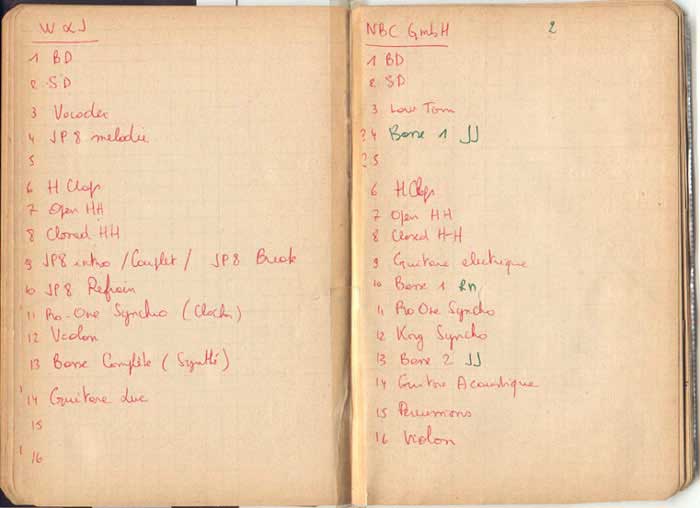 W & J
1 BD
2 SD
3 Vocoder
4 JP 8 melodie
5
6 H Clap
7 Open HH
8 Closed HH
9 JP8 intro / Couplet / JP8 Break
10 JP 8 Refrain
11 Pro-One Synchro (Clochn)
12 Violon
13 Basse Complète (Synthé)
14 Guitare Luc
15
16
NBC GmbH 2
1 BD
2 SD
3 Low Tom
? 4 Basse 1 JJ
? 5
6 H Claps
7 Open HH
8 Closed H-H
9 Guitare electrique
10 Basse 1
11 Pro One Synchro
12 Korg Synchro
13 Basse 2 JJ
14 Guitare Acoustique
15 Percussions
16 Violon